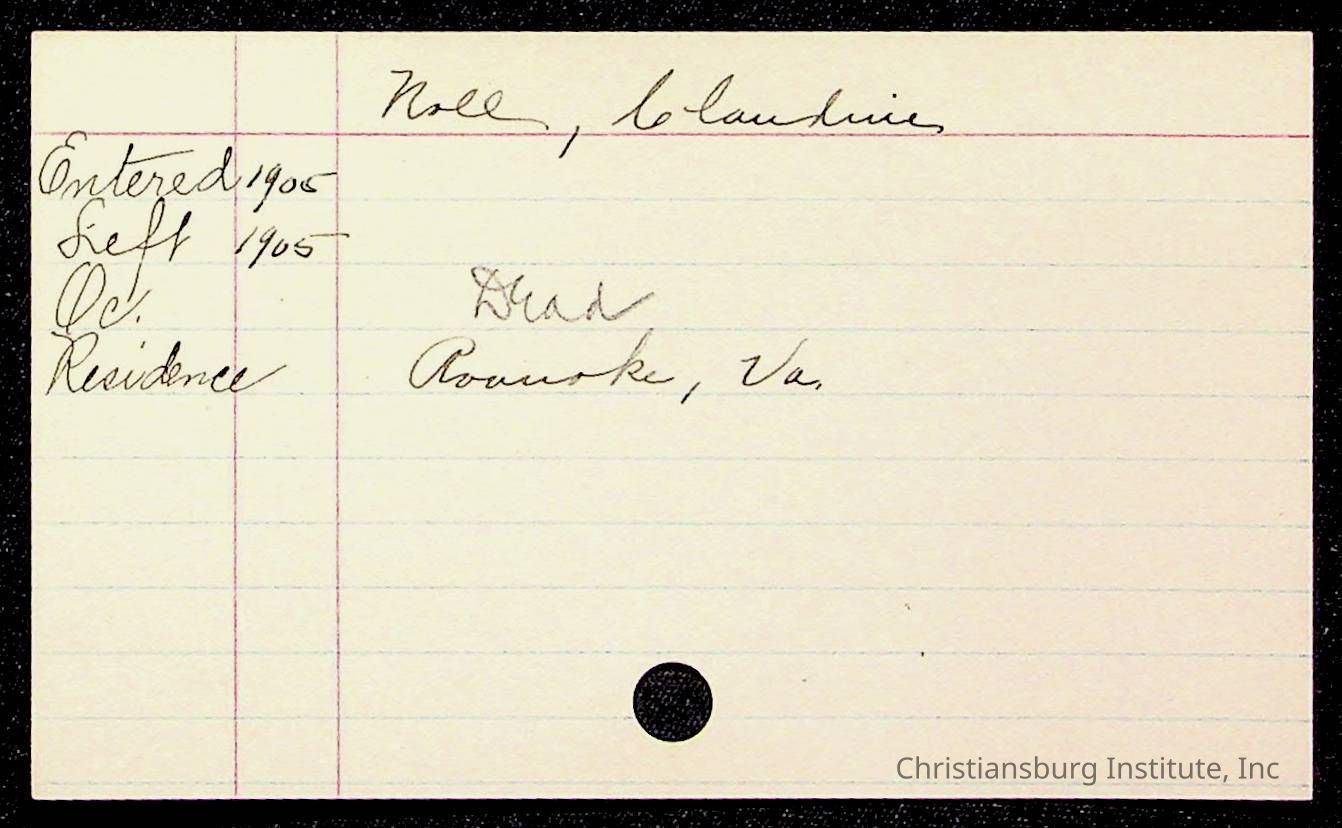 Noll, Claudine
Entered 1905
Left 1905
Oc. Dead
Residence Roanoke, Va.
Christiansburg Institute, Inc